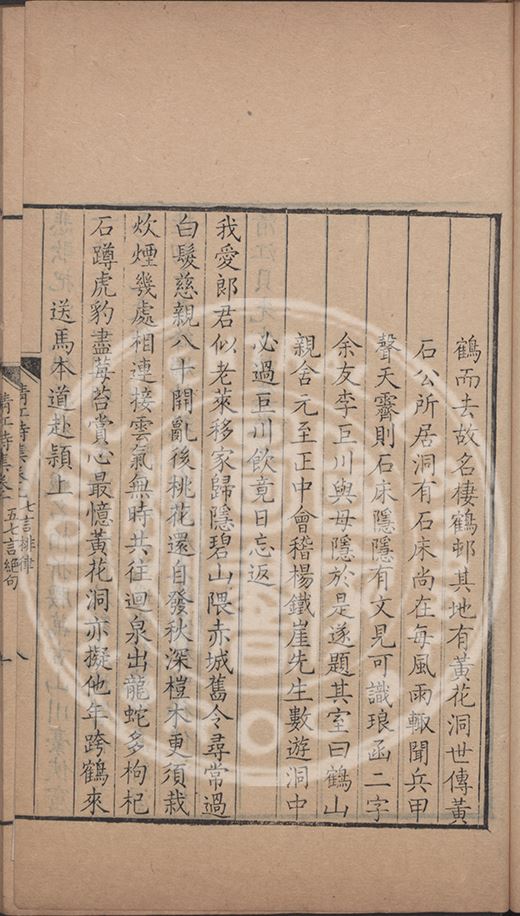 鶴而去故名棲鶴邨其地有黃花洞世傳黃
石公所居洞有石床尚在每風雨輙聞兵甲
聲天霽則石床隱隱有文見可識琅函二字
余友李巨川與母隱於是遂題其室曰鶴山
親舍元至正中會稽楊鐵崖先生數遊洞中
必過巨川飲竟日忘返
我愛郎君似老萊移家歸隱碧山隈赤城舊令尋常過
白髮慈親八十開亂後桃花還自發秋深榿木更須栽
炊煙幾處相連接雲氣無時共往迴泉出龍蛇多枸杞
石蹲虎豹盡莓苔賞心最憶黃花洞亦擬他年跨鶴來
送馬本道赴潁上
清江詩集卷
七言排律
五七言絕句
八